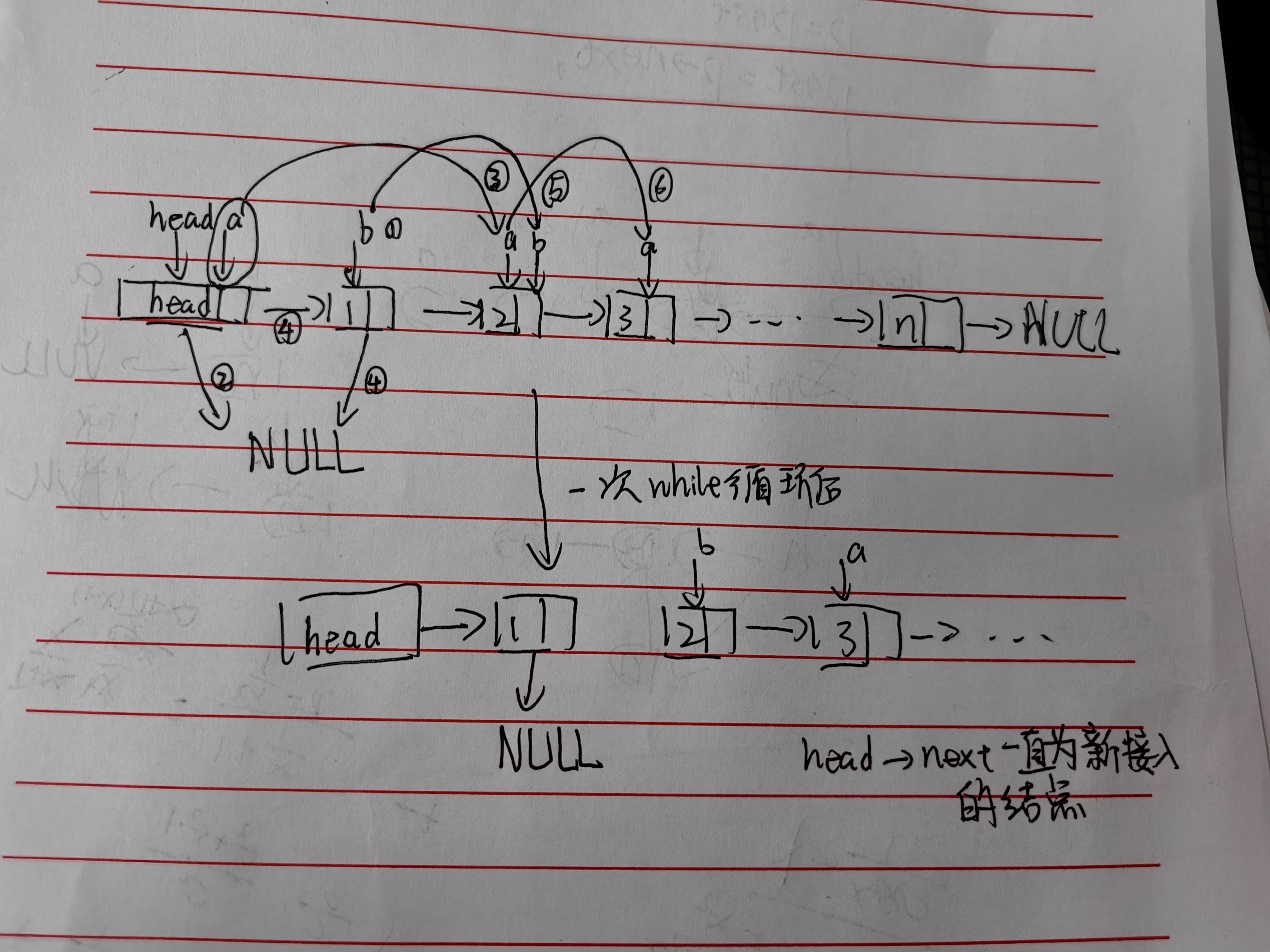 ③ ⑤ ⑥
head a b ① a b a
head ④ 1 2 3 ... n NULL
② ④
NULL
一次while循环后
b a
head 1 2 3 ...
NULL
head→next一直为新接入
的结点